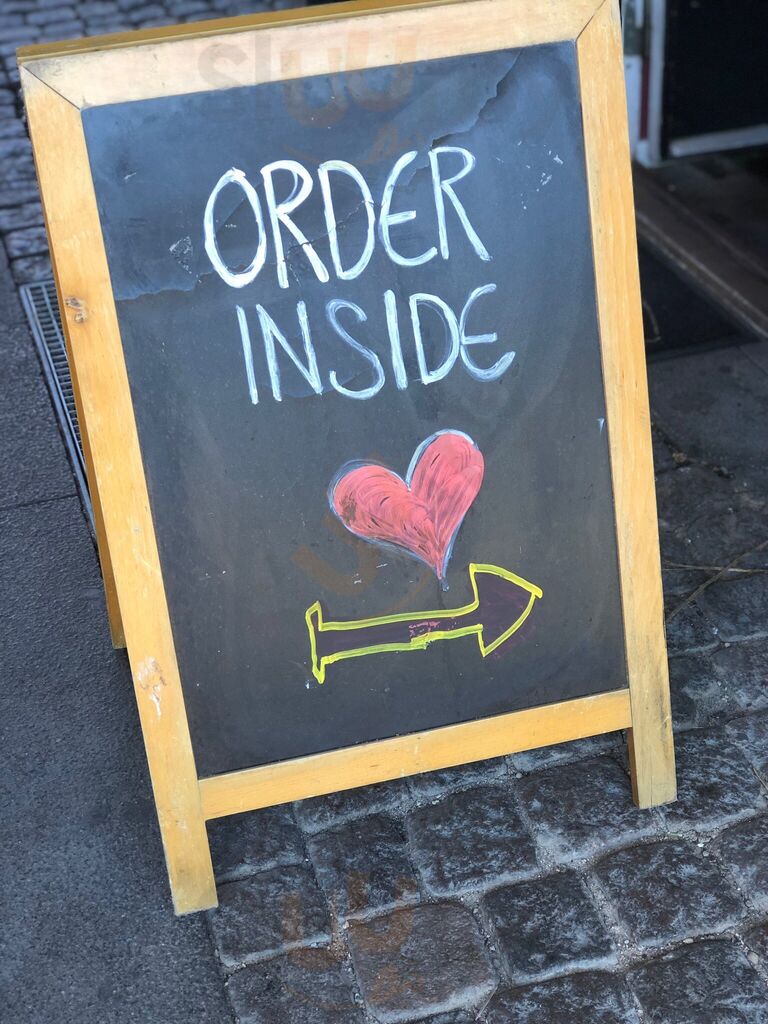 ORDER
INSIDE